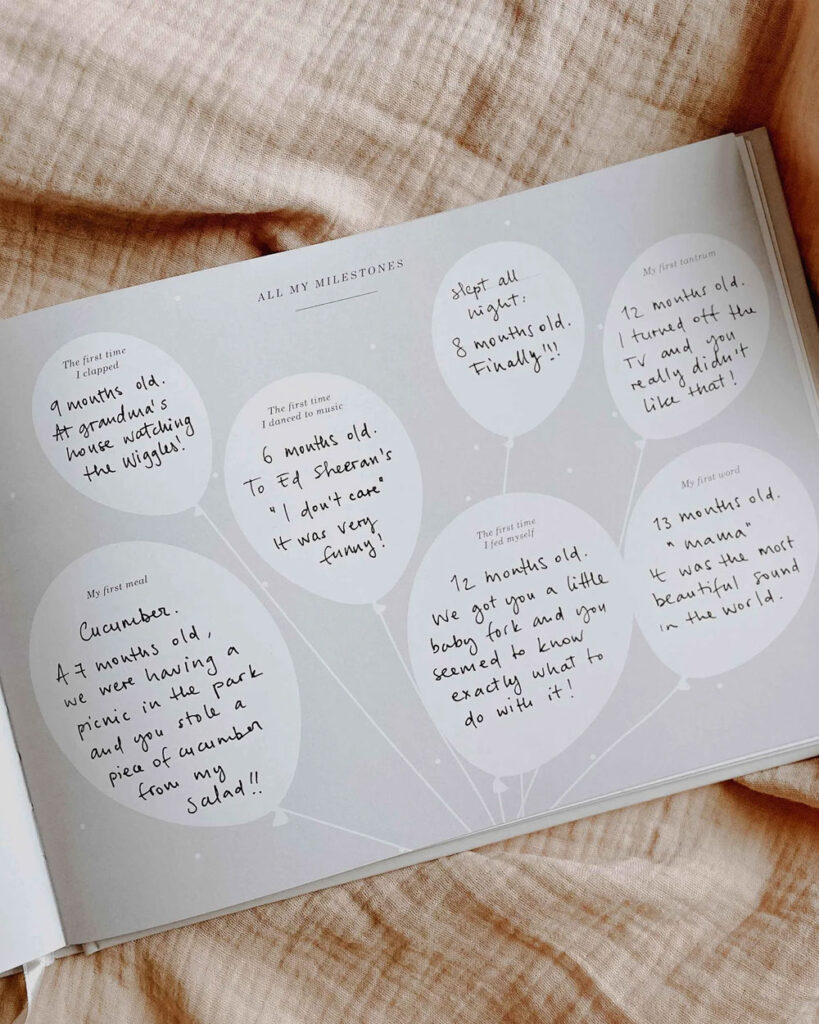 ALL MY MILESTONES
The first time
I clapped
9 months old.
At grandma's
house watching
the Wiggles!
The first time
I danced to music
6 months old.
To Ed Sheeran's
"I don't care"
It was very
funny!
Slept all
night:
8 months old.
Finally!!!
My first tantrum
12 months old.
I turned off the
TV and you
really didn't
like that!
My first meal
Cucumber.
A 7 months old,
we were having a
picnic in the park
and you stole a
piece of cucumber
from my
salad!!
The first time
I fed myself
12 months old.
We got you a little
baby fork and you
seemed to know
exactly what to
do with it!
My first word
13 months old.
"mama"
It was the most
beautiful sound
in the world.